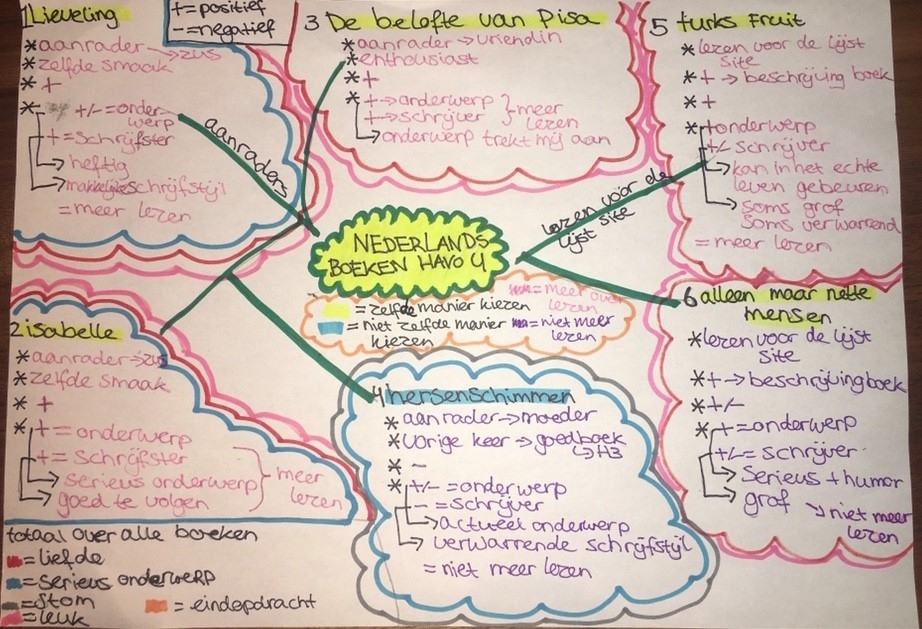 1 Lieveling
*aanrader → zus
*zelfde smaak
* +
* +/- = onder-
werp
+ = Schrijfster
heftig
makkelijke schrijfstijl
= meer lezen
+ = positief
- = negatief
3 De belofte van Pisa
*aanrader → vriendin
*enthousiast
* +
* + → onderwerp } meer
+ → schrijver lezen
onderwerp trekt mij aan
5 turks Fruit
*lezen voor de lijst
site
* + → beschrijving boek
* +
* + onderwerp
+/- schrijver
kan in het echte
leven gebeuren
Soms grof
Soms verwarrend
= meer lezen
aanraders
lezen voor de
lijst site
NEDERLANDS
BOEKEN HAVO 4
= meer over
lezen
= zelfde manier kiezen
= niet zelfde manier
kiezen
= niet meer
lezen
2 isabelle
*aanrader → zus
*zelfde smaak
* +
* + = onderwerp
+ = schrijfster
serieus onderwerp
goed te volgen
} meer
lezen
4 hersenschimmen
* aanrader → moeder
* Vorige keer → goed boek
↳ H3
* -
* +/- = onderwerp
- = schrijver
actueel onderwerp
verwarrende schrijfstijl
= niet meer lezen
6 alleen maar nette
mensen
*lezen voor de lijst
site
* + → beschrijving boek
* +/-
* + = onderwerp
+/- = schrijver
Serieus + humor
grof
↘ niet meer
lezen
totaal over alle boeken
= liefde
= serieus onderwerp
= stom
= leuk
= eindopdracht